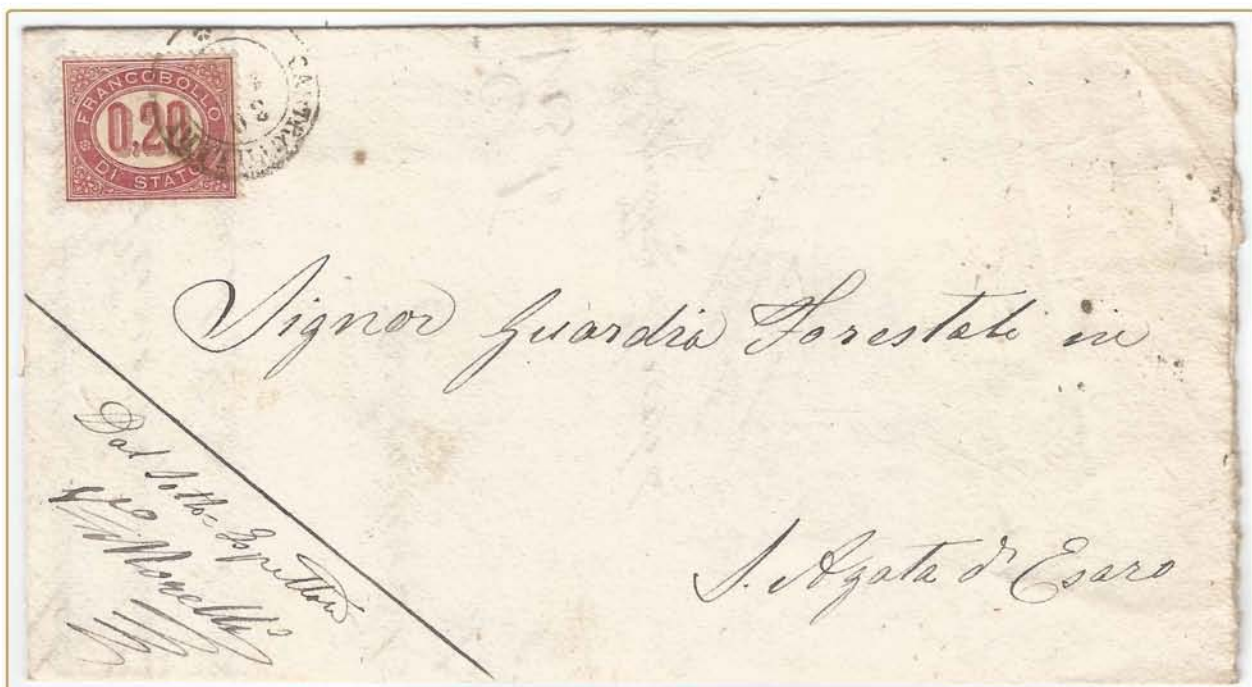 FRANCOBOLLO
0,20
DI STATO
Signor Guardia Forestale in
S. Agata d'Esaro
Dal Sotto-Ispettore